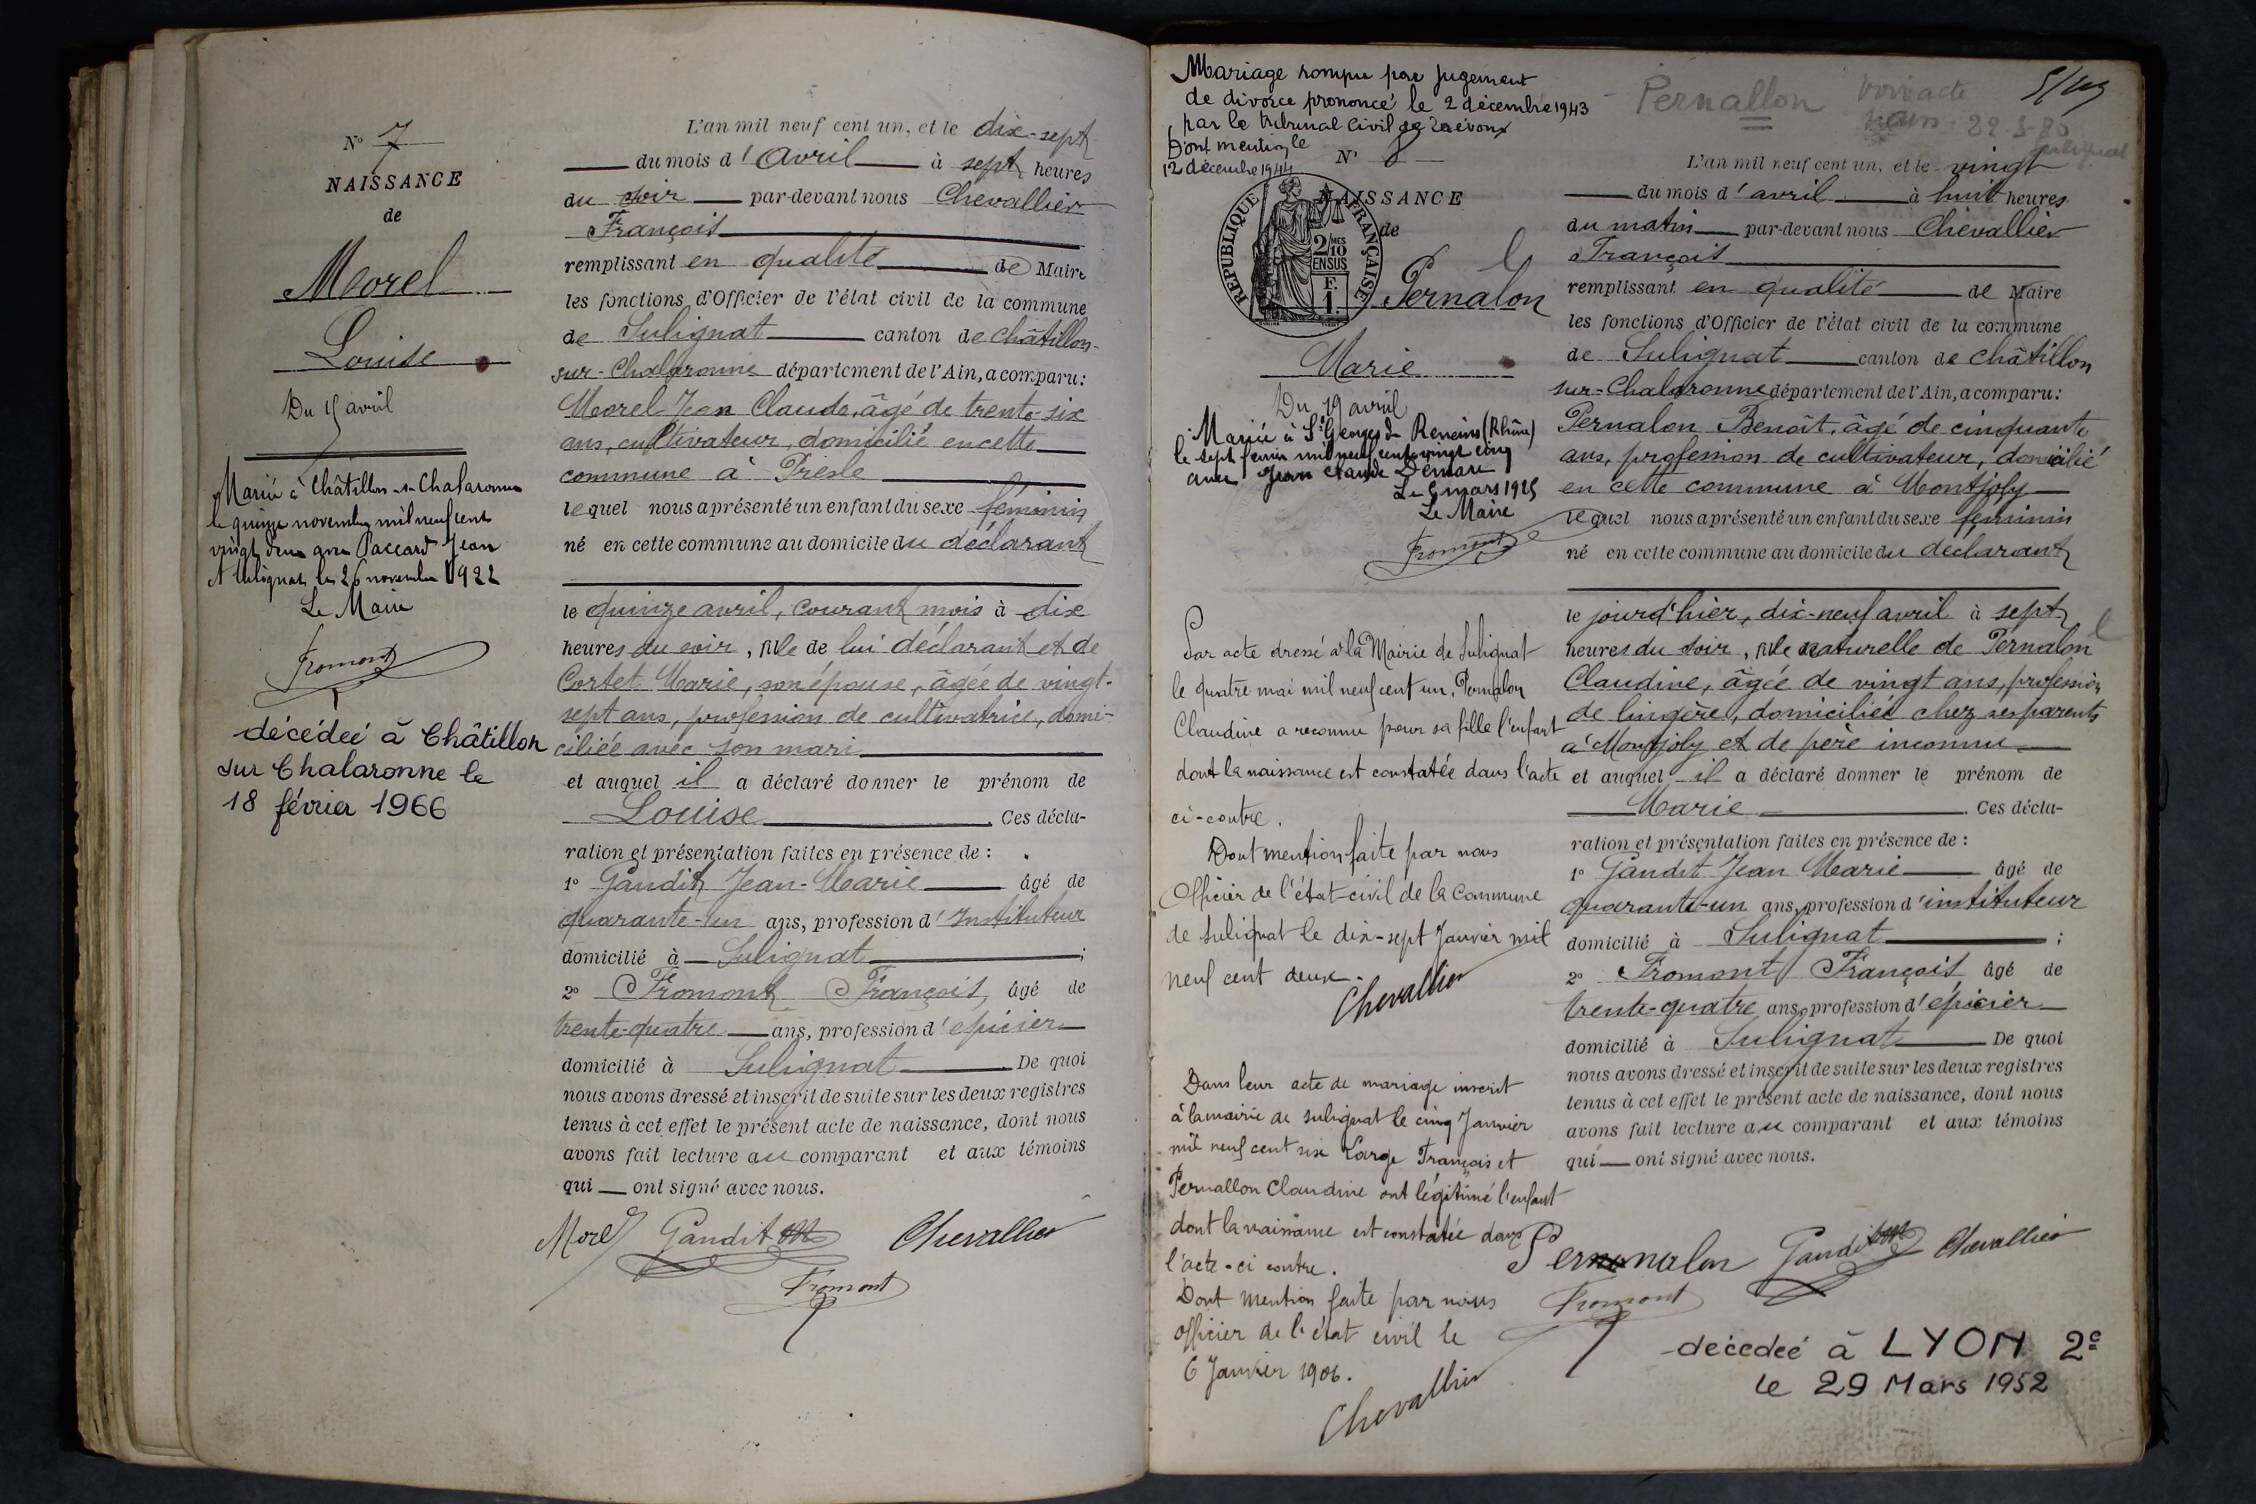 N° 7
NAISSANCE
de
Morel
Louise
Du 15 avril
Mariée à Châtillon-s-Chalaronne
le quinze novembre mil neuf cent
vingt deux avec Paccard Jean
A Sulignat les 26 novembre 1922
Le Maire
Fromont
décédée à Châtillon
sur Chalaronne le
18 février 1966
L'an mil neuf cent un, et le dix-sept
du mois d'Avril à sept heures
du soir par-devant nous Chevallier
François
remplissant en qualité de Maire
les fonctions d'Officier de l'état civil de la commune
de Sulignat canton de Châtillon-
sur-Chalaronne département de l'Ain, a comparu:
Morel Jean Claude, âgé de trente-six
ans, cultivateur, domicilié en cette
commune à Presle
lequel nous a présenté un enfant du sexe féminin
né en cette commune au domicile du déclarant
le quinze avril, courant mois à dix
heures du soir, fille de lui déclarant et de
Cortet Marie, son épouse, âgée de vingt-
sept ans, profession de cultivatrice, domi-
ciliée avec son mari
et auquel il a déclaré donner le prénom de
Louise. Ces décla-
ration et présentation faites en présence de :
1° Gandit Jean-Marie âgé de
quarante-un ans, profession d'Instituteur
domicilié à Sulignat ;
2° Fromont François, âgé de
trente-quatre ans, profession d'épicier
domicilié à Sulignat. De quoi
nous avons dressé et inscrit de suite sur les deux registres
tenus à cet effet le présent acte de naissance, dont nous
avons fait lecture au comparant et aux témoins
qui ont signé avec nous.
Morel Gandit Chevallier
Fromont
Mariage rompu par jugement
de divorce prononcé le 2 décembre 1943
par le tribunal Civil de Trévoux
Dont mention le
12 décembre 1944
N° 8
NAISSANCE
de
RÉPUBLIQUE FRANÇAISE
2/10 MES
EN SUS
F.
1.
Pernalon
l
Marie
Du 19 avril
Mariée à St Georges de Reneins (Rhône)
le sept février mil neuf cent vingt cinq
avec Jean Claude Démare
Le 5 mars 1925
Le Maire
Fromont
Par acte dressé à la Mairie de Sulignat
le quatre mai mil neuf cent un, Pernalon
Claudine a reconnu pour sa fille l'enfant
dont la naissance est constatée dans l'acte
ci-contre.
Dont mention faite par nous
Officier de l'état-civil de la Commune
de Sulignat le dix-sept Janvier mil
neuf cent deux.
Chevallier
Dans leur acte de mariage inscrit
à la mairie de Sulignat le cinq Janvier
mil neuf cent six Large François et
Pernallon Claudine ont légitimé l'enfant
dont la naissance est constatée dans
l'acte-ci contre.
Dont mention faite par nous
officier de l'état civil le
6 Janvier 1906.
Chevallier
Pernallon voir acte
22-5-80
L'an mil neuf cent un, et le vingt
du mois d'avril à huit heures
du matin par-devant nous Chevallier
François
remplissant en qualité de Maire
les fonctions d'Officier de l'état civil de la commune
de Sulignat canton de Châtillon
sur-Chalaronne département de l'Ain, a comparu:
Pernalon Benoît, âgé de cinquante
ans, profession de cultivateur, domicilié
en cette commune à Montjoly
lequel nous a présenté un enfant du sexe féminin
né en cette commune au domicile du déclarant
le jourd'hier, dix-neuf avril à sept
heures du soir, fille naturelle de Pernalon
l
Claudine, âgée de vingt ans, profession
de lingère, domiciliée chez ses parents
à Montjoly et de père inconnu
et auquel il a déclaré donner le prénom de
Marie. Ces décla-
ration et présentation faites en présence de :
1° Gandit Jean Marie âgé de
quarante-un ans, profession d'instituteur
domicilié à Sulignat ;
2° Fromont François âgé de
trente-quatre ans, profession d'épicier
domicilié à Sulignat De quoi
nous avons dressé et inscrit de suite sur les deux registres
tenus à cet effet le présent acte de naissance, dont nous
avons fait lecture au comparant et aux témoins
qui ont signé avec nous.
Pernonalon Gandit Chevallier
Fromont
décédée à LYON 2e
le 29 Mars 1952